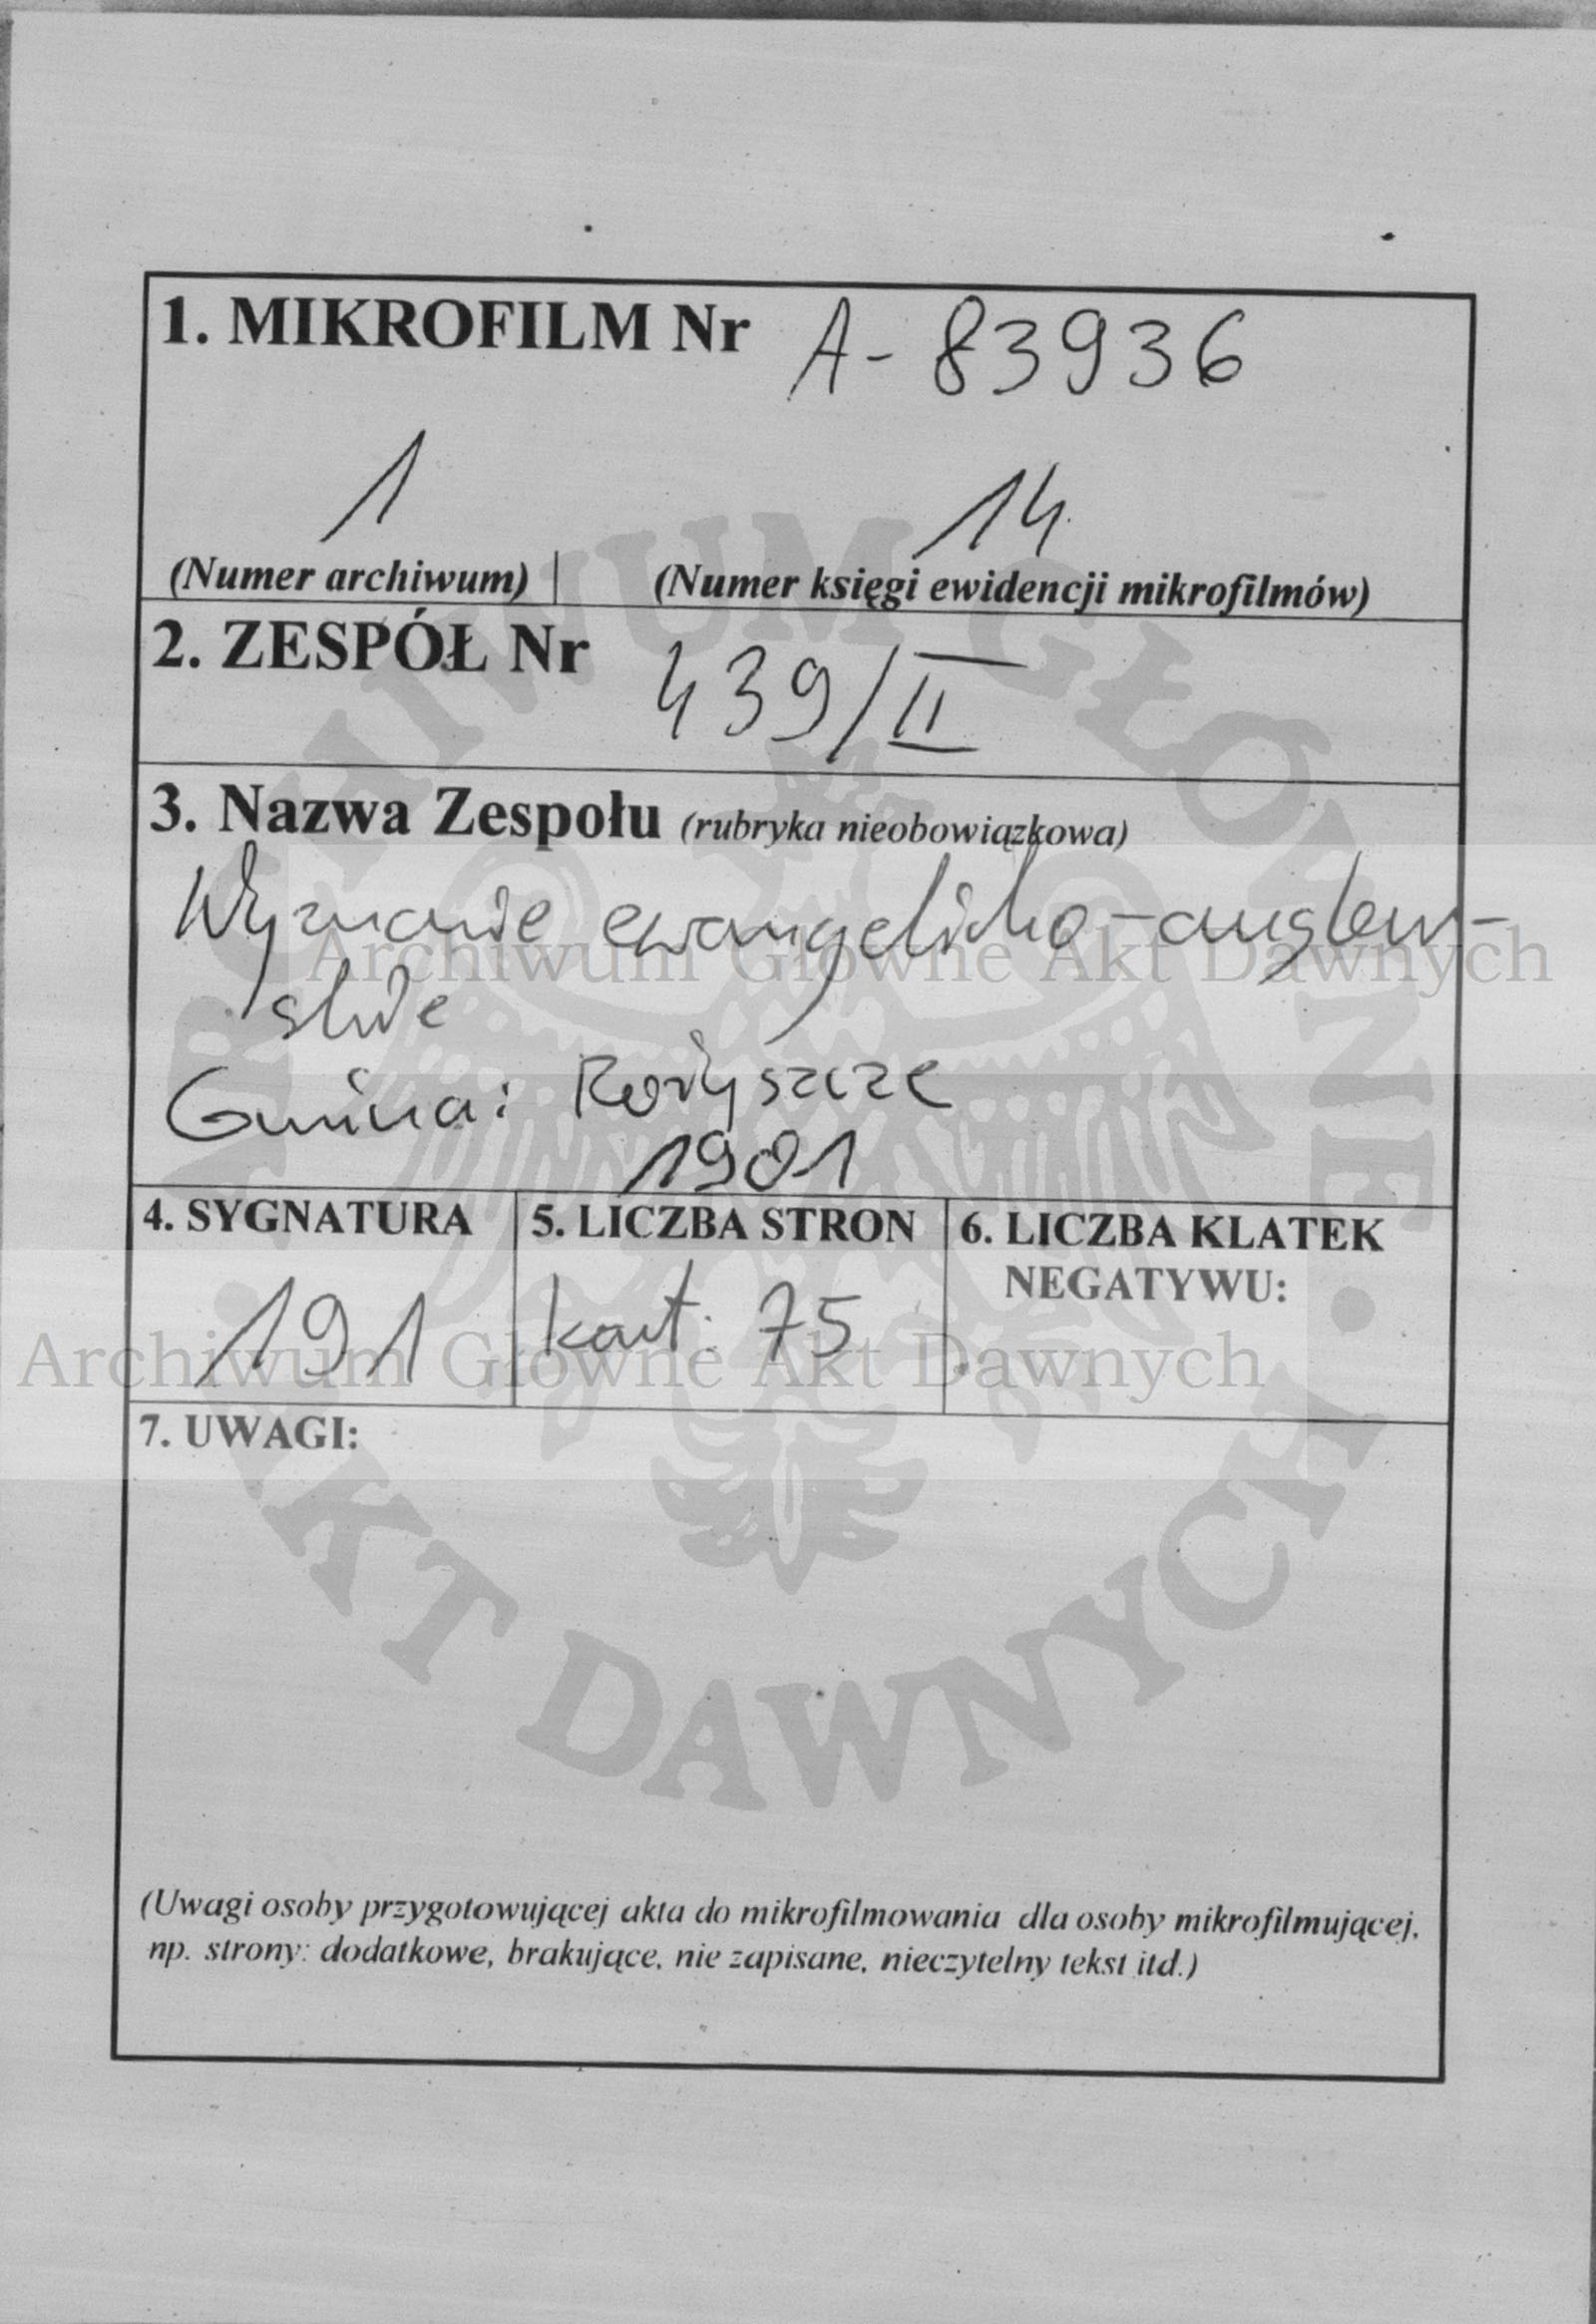 1. MIKROFILM Nr A-83936
1 14
(Numer archiwum) (Numer księgi ewidencji mikrofilmów)
2. ZESPÓŁ Nr 439/II
3. Nazwa Zespołu (rubryka nieobowiązkowa)
Wyznanie ewangelicko-augsbur-
skie
Gmina: Rożyszcze
1901
4. SYGNATURA 5. LICZBA STRON 6. LICZBA KLATEK
NEGATYWU:
191 kart. 75
7. UWAGI:
(Uwagi osoby przygotowującej akta do mikrofilmowania dla osoby mikrofilmującej,
np. strony: dodatkowe, brakujące, nie zapisane, nieczytelny tekst itd.)
Archiwum Główne Akt Dawnych
Archiwum Główne Akt Dawnych
ARCHIWUM GŁÓWNE AKT DAWNYCH